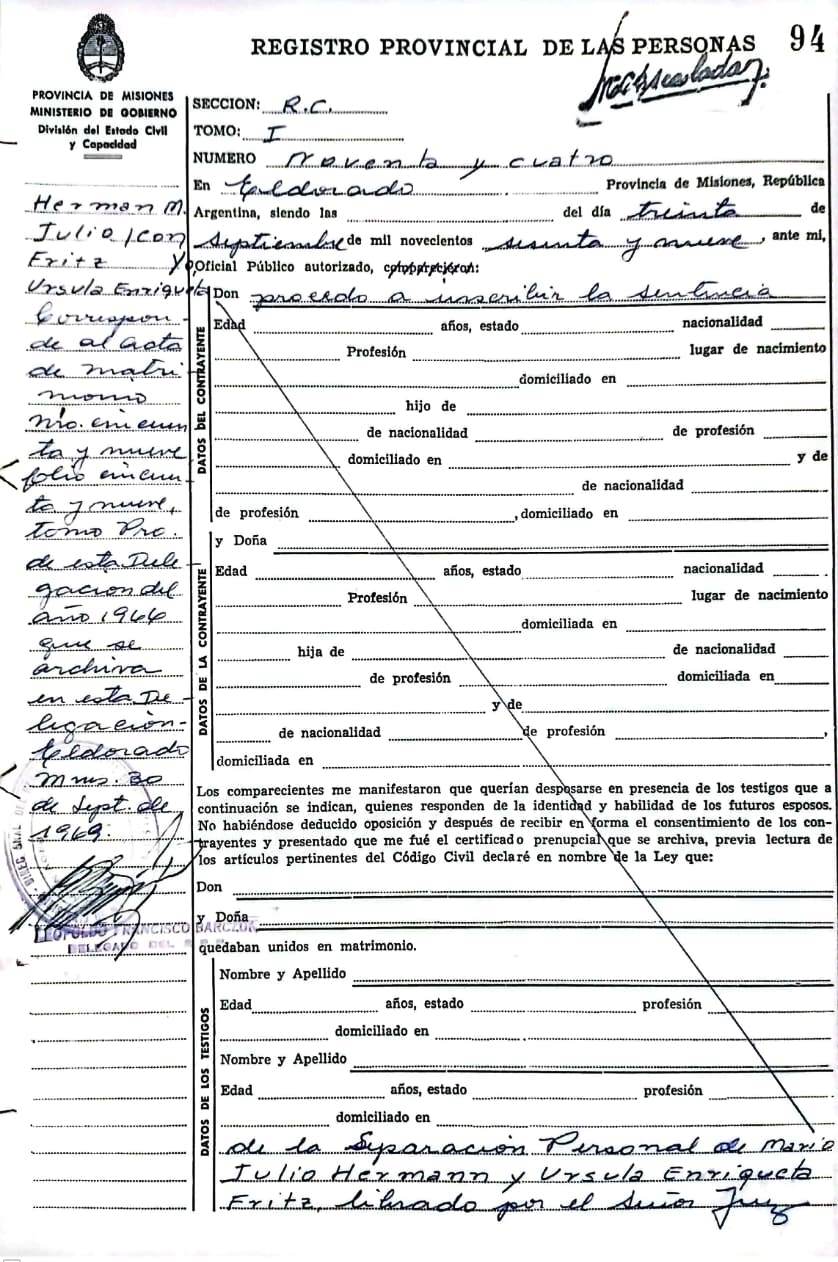 REGISTRO PROVINCIAL DE LAS PERSONAS 94
PROVINCIA DE MISIONES
MINISTERIO DE GOBIERNO
División del Estado Civil
y Capacidad
SECCION: R.C.
TOMO: I
NUMERO Noventa y cuatro
En Eldorado Provincia de Misiones, República
Argentina, siendo las del día treinta de
Septiembre de mil novecientos sesenta y nueve, ante mi,
Oficial Público autorizado,
Don procedo a inscribir la sentencia
Edad años, estado nacionalidad
Profesión lugar de nacimiento
domiciliado en
hijo de
de nacionalidad de profesión
domiciliado en y de
de nacionalidad
de profesión , domiciliado en
DATOS DEL CONTRAYENTE
y Doña
Edad años, estado nacionalidad
Profesión lugar de nacimiento
domiciliada en
hija de de nacionalidad
de profesión domiciliada en
y de
de nacionalidad de profesión ,
domiciliada en
DATOS DE LA CONTRAYENTE
Los comparecientes me manifestaron que querían desposarse en presencia de los testigos que a
continuación se indican, quienes responden de la identidad y habilidad de los futuros esposos.
No habiéndose deducido oposición y después de recibir en forma el consentimiento de los con-
trayentes y presentado que me fué el certificado prenupcial que se archiva, previa lectura de
los artículos pertinentes del Código Civil declaré en nombre de la Ley que:
Don
y Doña
quedaban unidos en matrimonio.
Nombre y Apellido
Edad años, estado profesión
domiciliado en
Nombre y Apellido
Edad años, estado profesión
domiciliado en
DATOS DE LOS TESTIGOS
de la Separación Personal de Mario
Julio Hermann y Ursula Enriqueta
Fritz, librado por el Señor Juez
Herman M.
Julio /con
Fritz
Ursula Enriqueta
Correspon-
de al acta
de matri
monio
Nro. cincuen
ta y nueve
folio cincuen
ta y nueve,
tomo Pro.
de esta Dele
gación del
año 1966
que se
archiva
en esta De-
legación-
Eldorado
Mnes. 30
de Sept. de
1969.
LEOPOLDO FRANCISCO BARCZUK
DELEGADO DEL